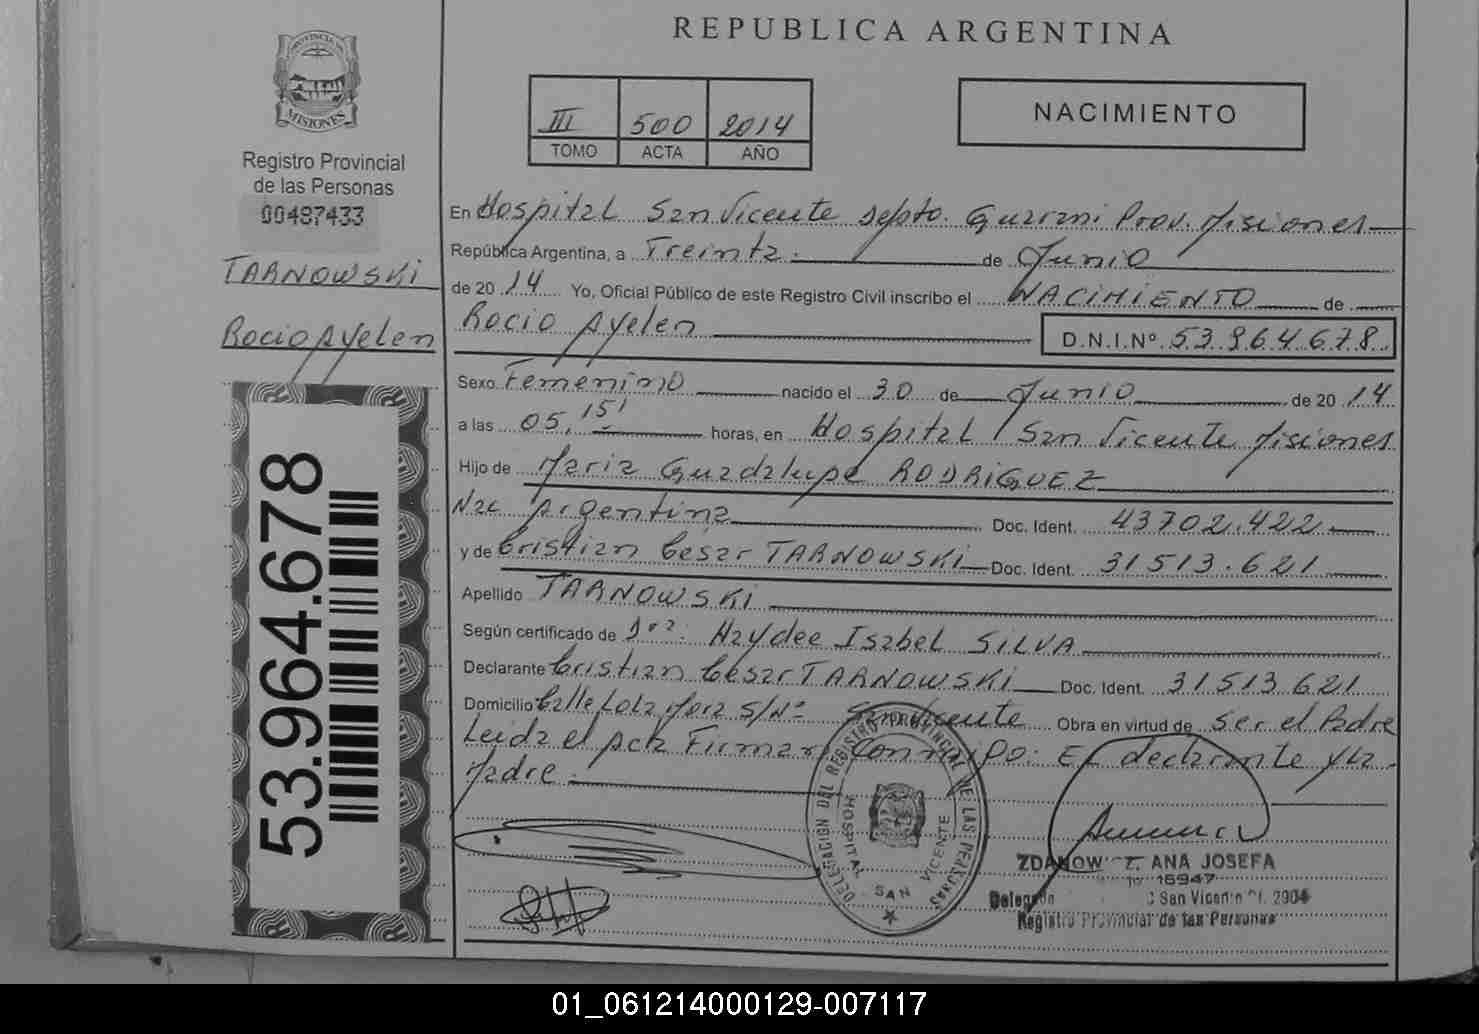 REPUBLICA ARGENTINA
PROVINCIA DE
MISIONES
Registro Provincial
de las Personas
00487433
TARNOWSKI
Rocio Ayelen
53.964.678
III 500 2014
TOMO ACTA AÑO
NACIMIENTO
En Hospital San Vicente Depto. Guarani Prov. Misiones
República Argentina, a Treinta de Junio
de 20 14 Yo, Oficial Público de este Registro Civil inscribo el NACIMIENTO de
Rocio Ayelen D.N.I.Nº 53.964.678
Sexo Femenino nacido el 30 de Junio de 20 14
a las 05,15' horas, en Hospital San Vicente Misiones
Hijo de Maria Guadalupe RODRIGUEZ
Nac Argentina Doc. Ident. 43702.422
y de Cristian César TARNOWSKI Doc. Ident. 31513.621
Apellido TARNOWSKI
Según certificado de Dra: Haydee Isabel SILVA
Declarante Cristian César TARNOWSKI Doc. Ident. 31513621
Domicilio Calle Lola Mora S/Nº San Vicente Obra en virtud de Ser el Padre
Leida el Acta Firman Conmigo: El declarante y la
Madre.
DELEGACION DEL REGISTRO PROVINCIAL DE LAS PERSONAS
HOSPITAL SAN VICENTE
ANA JOSEFA
16947
San Vicente 2904
Registro Provincial de las Personas
01_061214000129-007117